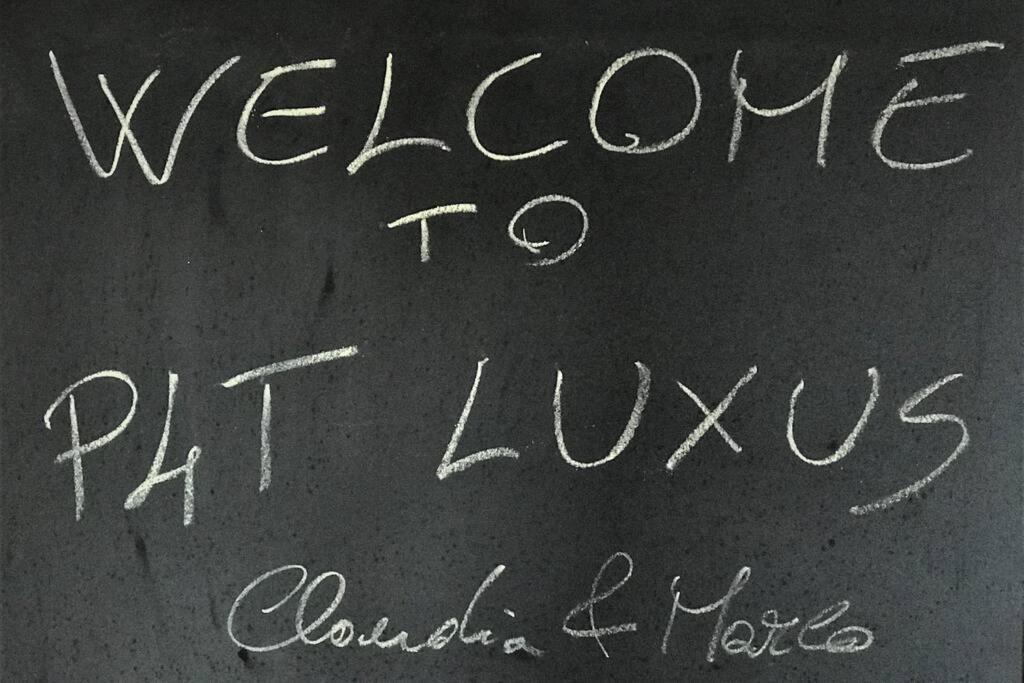 WELCOME
TO
P4T LUXUS
Claudia & Marco